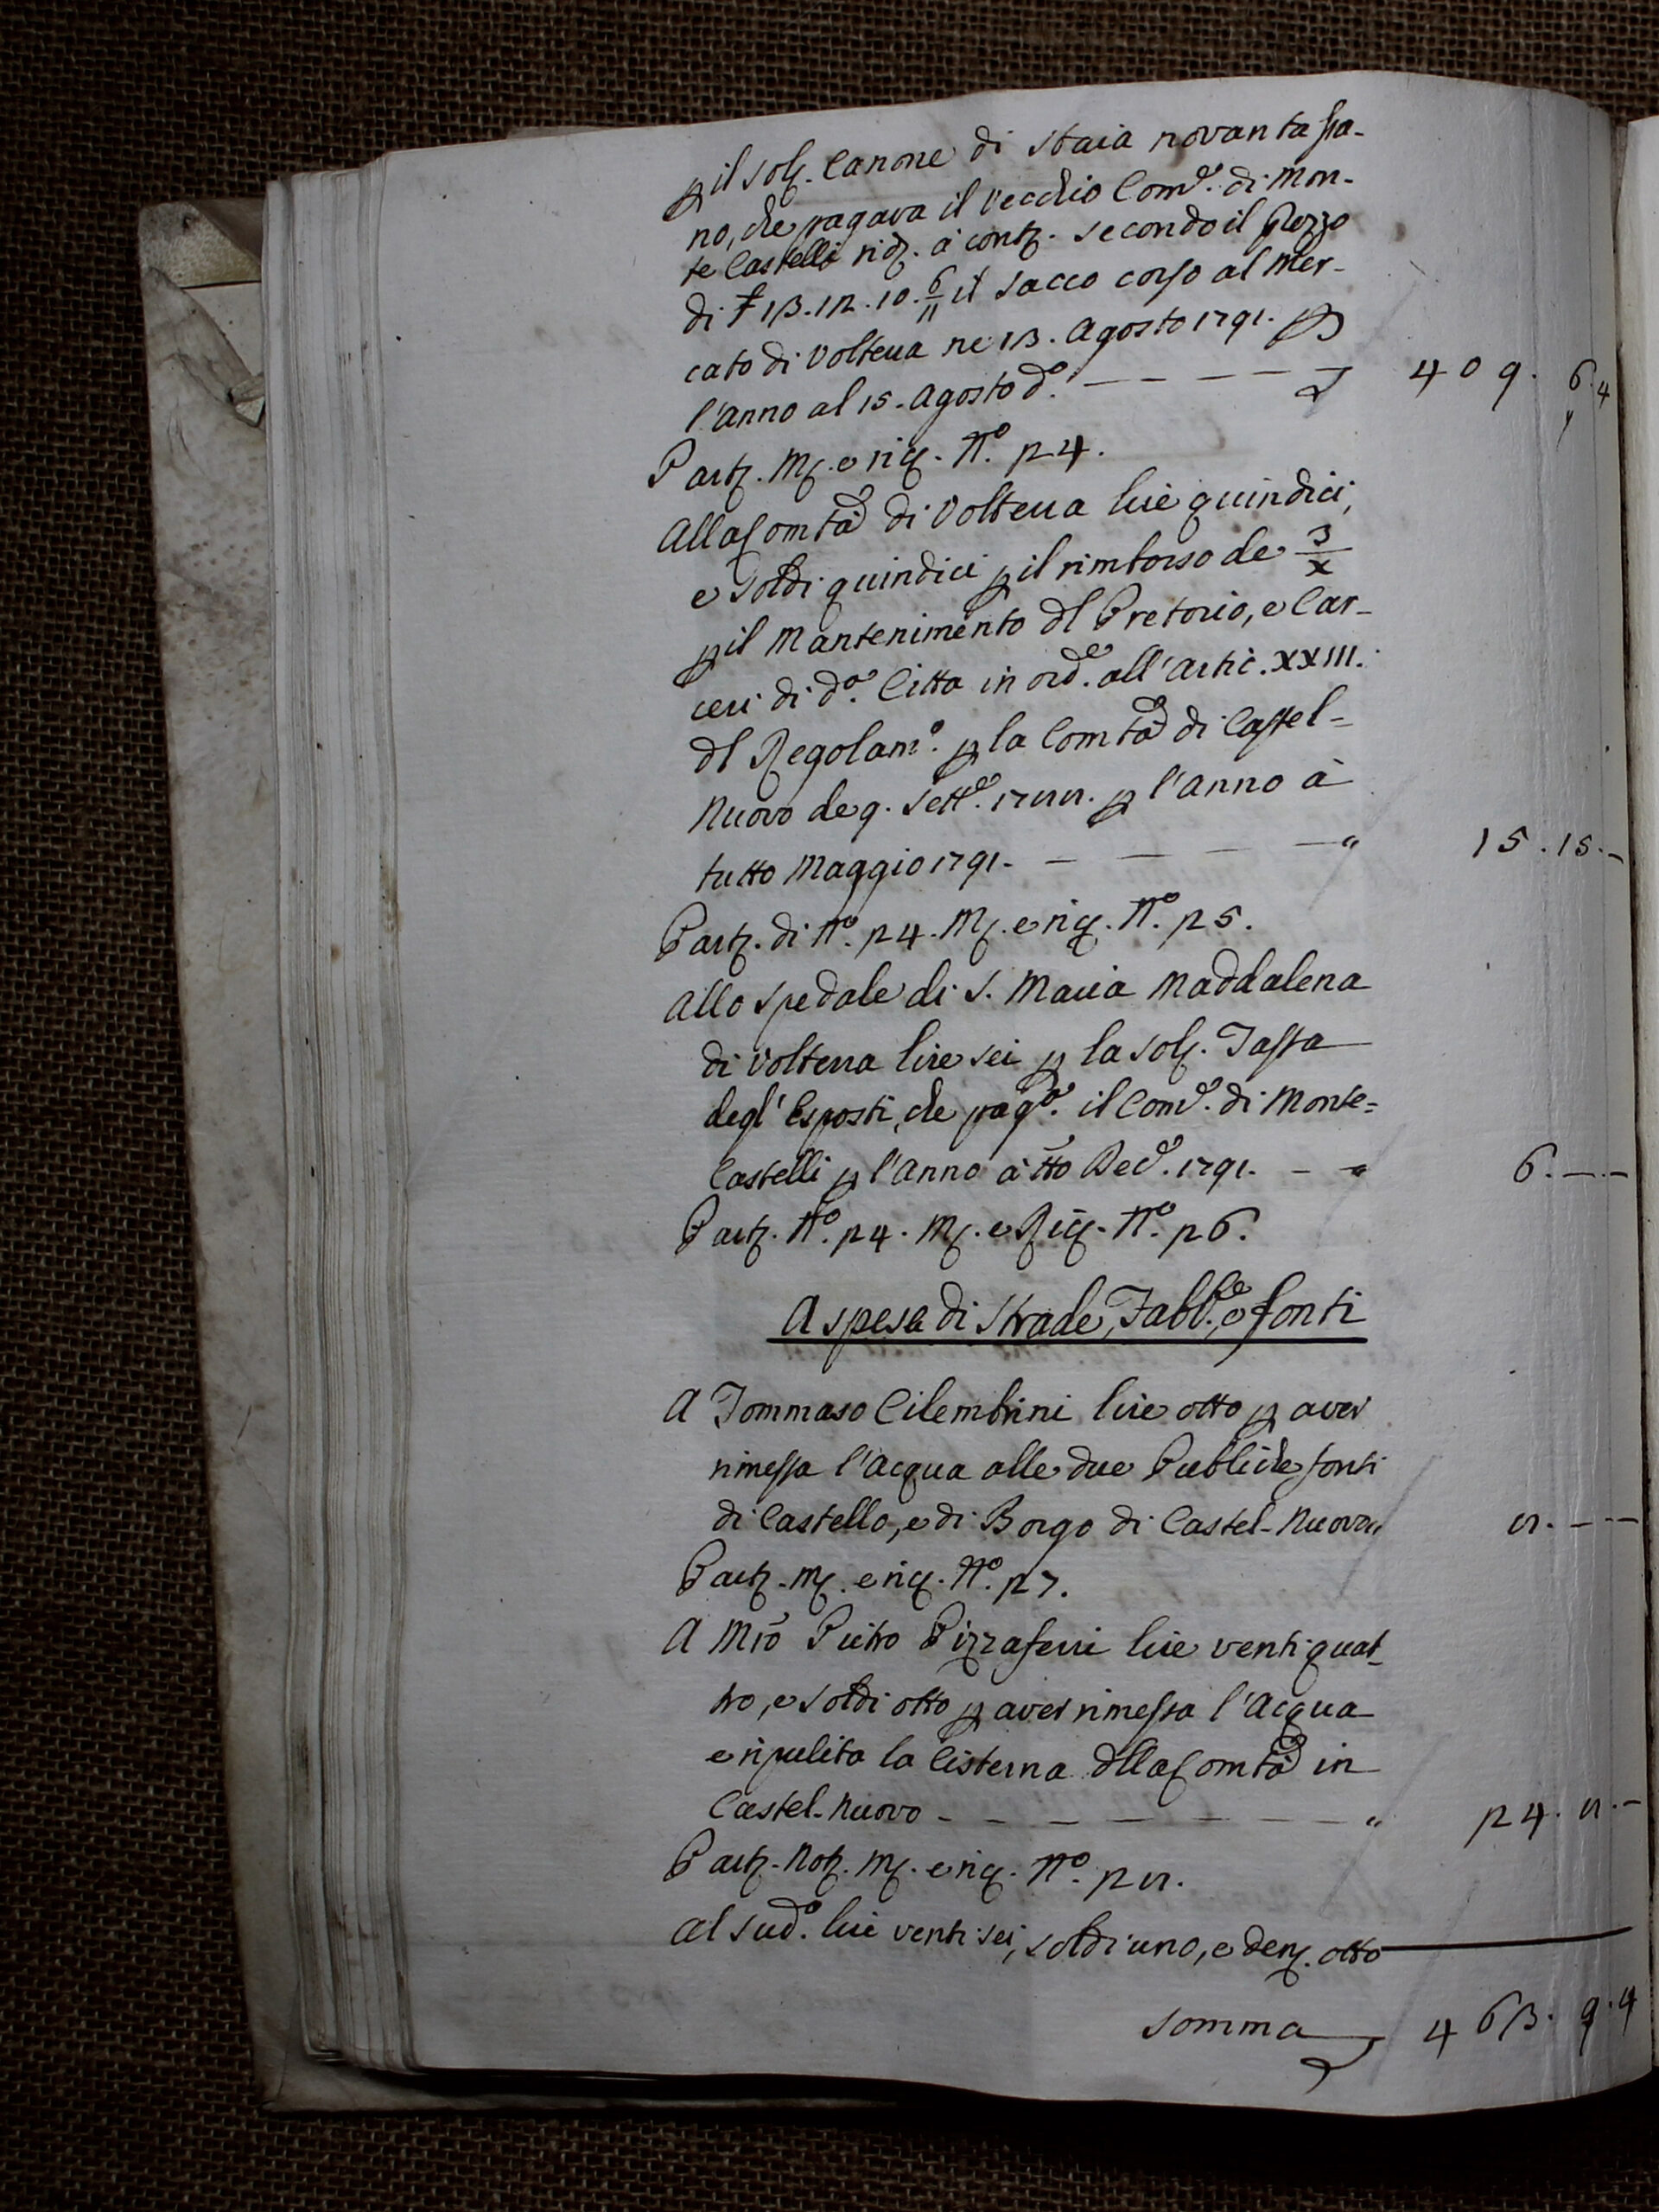 p il sol. Canone di Staia novanta gra-
no, che pagava il Vecchio Com.e di Mon-
te Castelli rid. à cont. secondo il Prezzo
di £ 13. 12. 10. 6/11 il Sacco corso al Mer-
cato di Volterra ne 13. Agosto 1791. p
l'Anno al 15. Agosto d.o — — — — 409. 6. 4
Part. M. e ric. N.o 24.
Alla Com.tà di Volterra lire quindici,
e soldi quindici p il rimborso de 3/x
p il Mantenimento dl Pretorio, e Car-
ceri di d.a Citta in ord.e all'Artic. XXIII.
dl Regolam.o p la Com.tà di Castel=
Nuovo de 9. Sett.e 1788. p l'Anno à
tutto Maggio 1791. — — — — " 15. 15. –
Part. di N.o 24. M. e ric. N.o 25.
Allo Spedale di S. Maria Maddalena
di Volterra lire sei p la sol. Tassa
degl'Esposti, che pag.a il Com.e di Monte=
Castelli p l'Anno à tto Dec.e 1791. – " 6. — –
Part. N.o 24. M. e Ric. N.o 26.
A spese di Strade, Fabb.e, e fonti
A Tommaso Cilembrini lire otto p aver
rimessa l'Acqua alle due Pubbliche fonti
di Castello, e di Borgo di Castel-Nuovo " 8. – –
Part. M. e ric. N.o 27.
A Mrō Pietro Pizzaferri lire ventiquat-
tro, e soldi otto p aver rimessa l'Acqua
e ripulita la Cisterna dlla Com.tà in
Castel-Nuovo – – — — — — — " 24. 8. –
Part. Not. M. e ric. N.o 28.
Al sud.o lire venti sei, soldi uno, e den. otto
Somma 463. 9. 4